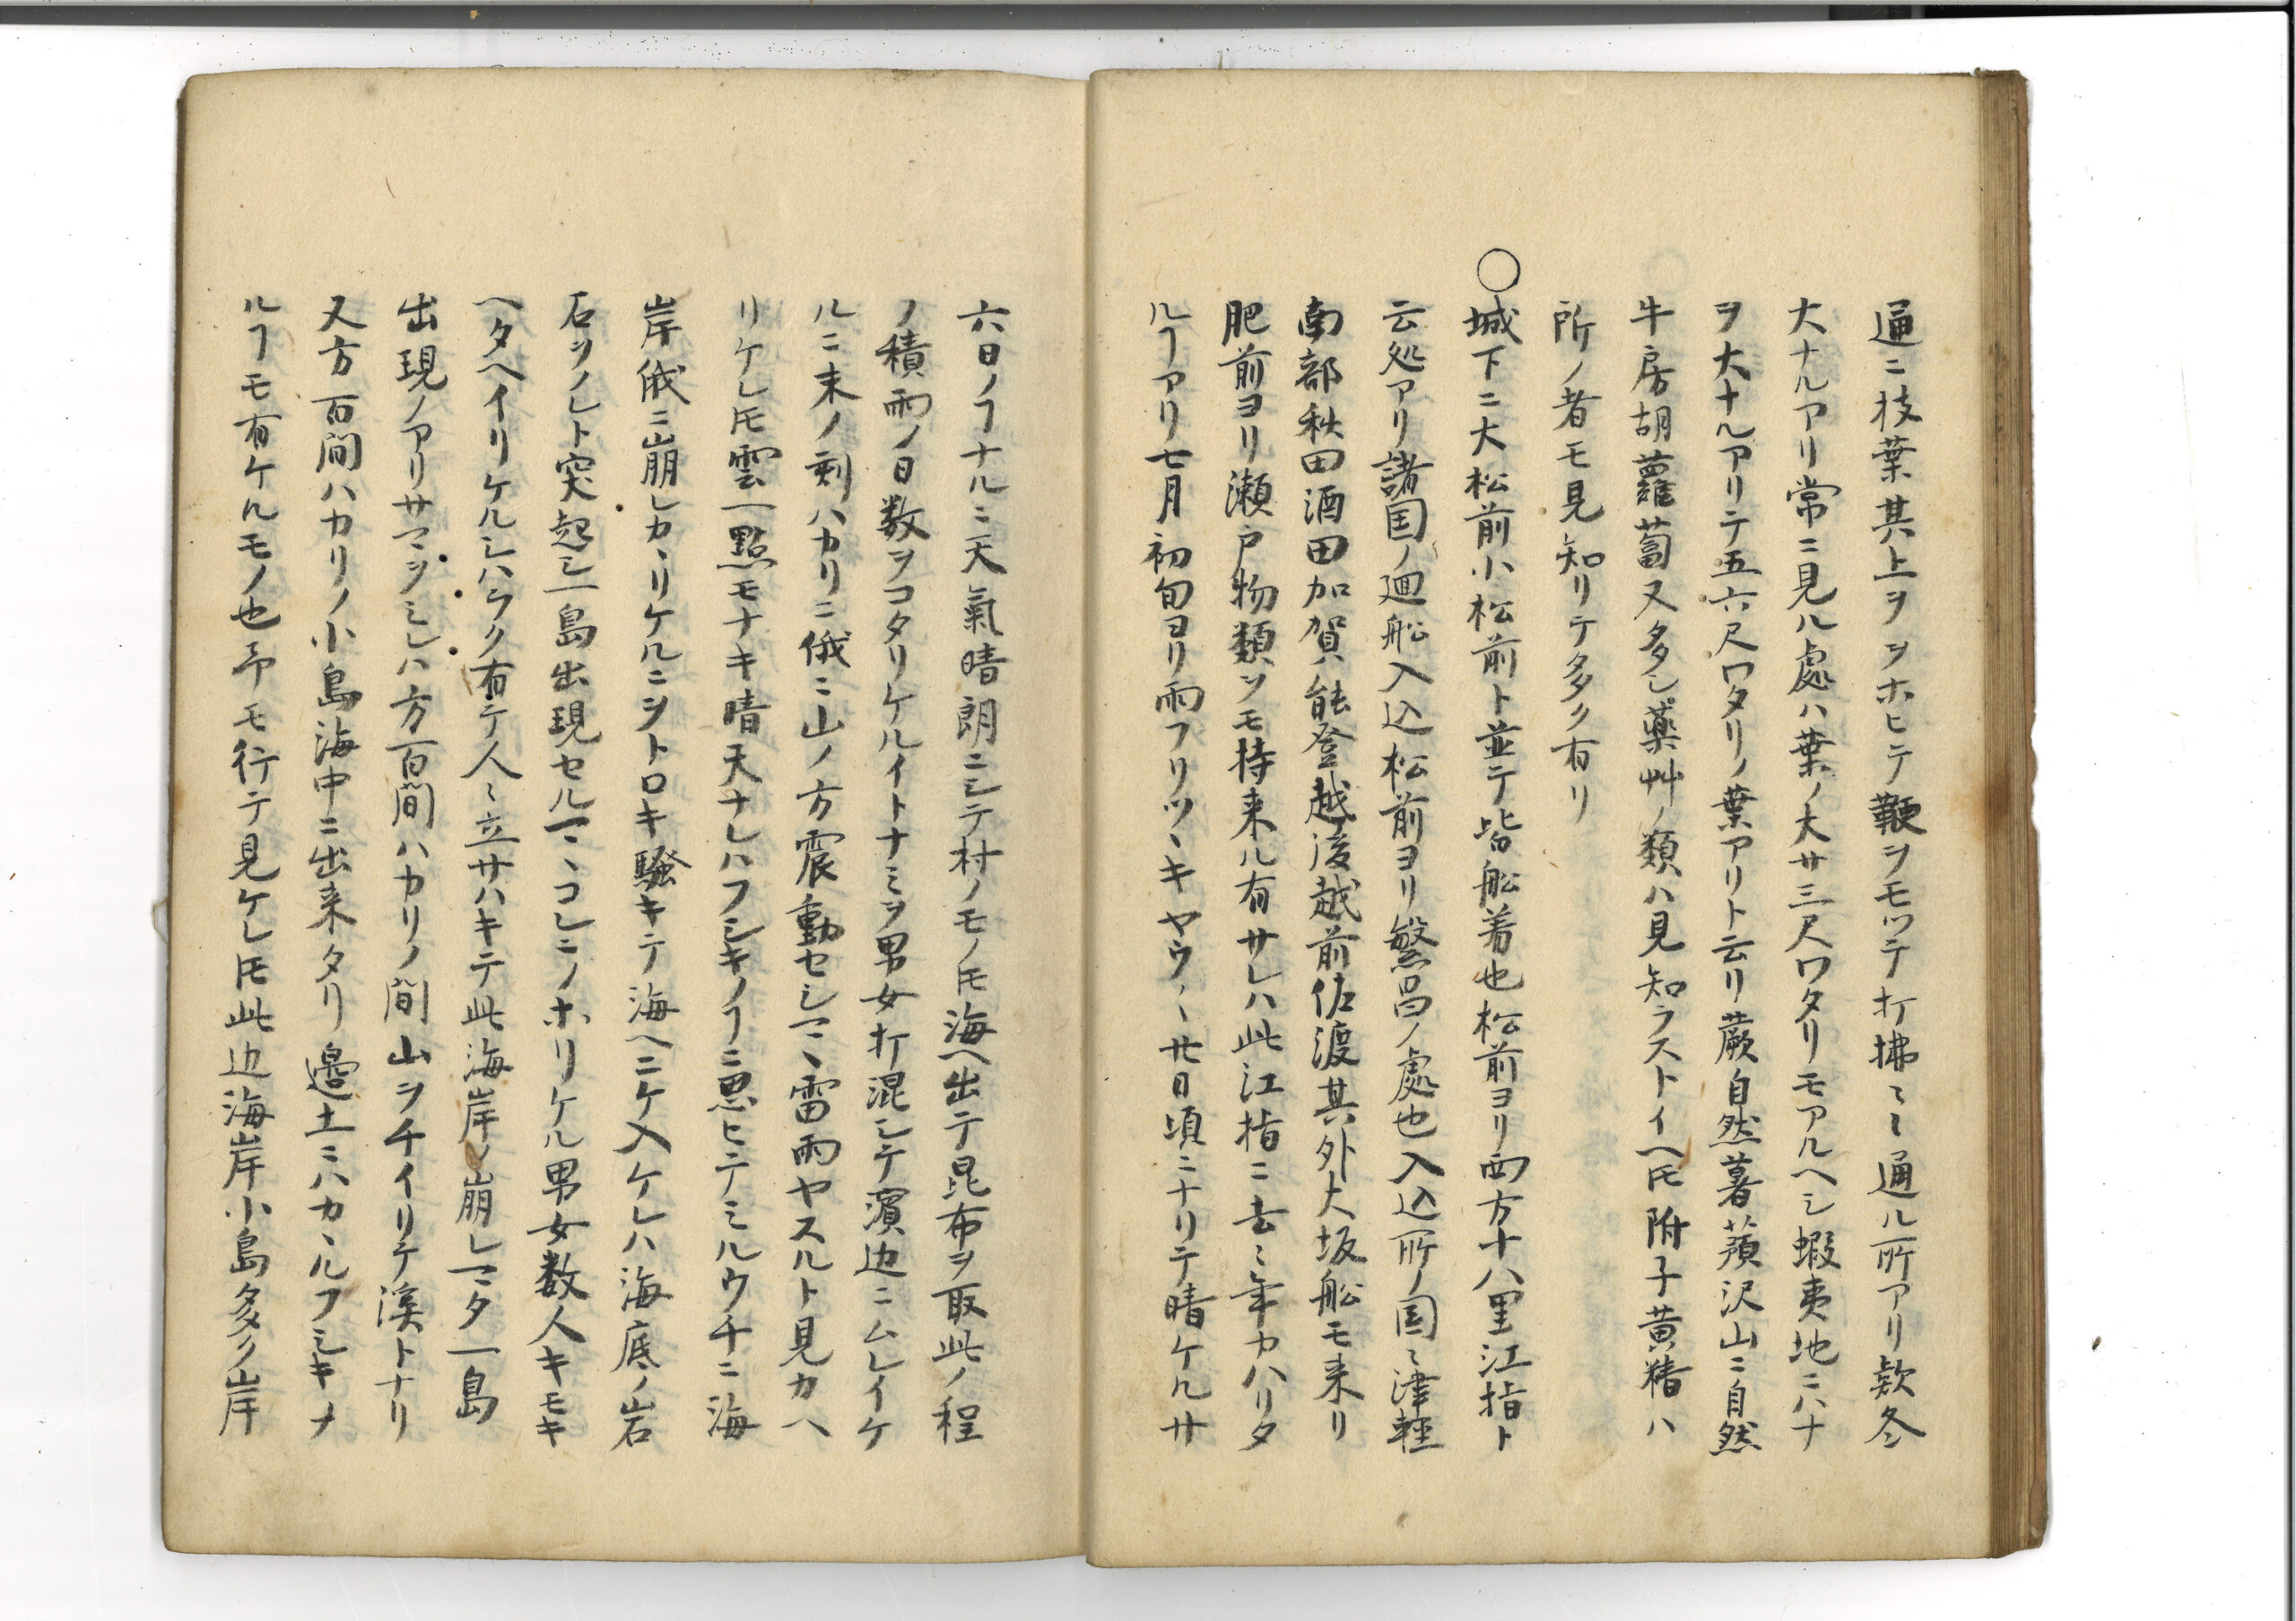 逼ニ枝葉其上ヲヲホヒテ鞭ヲモツテ打拂〻〻通ル所アリ欵冬
大ナルアリ常ニ見ル處ハ葉ノ大サ三尺ワタリモアルヘシ蝦夷地ニハナ
ヲ大ナルアリテ五六尺ワタリノ葉アリト云リ蕨自然薯蕷沢山ニ自然
牛房胡蘿蔔又多シ薬艸ノ類ハ見知ラストイヘ𪜈附子黄精ハ
所ノ者モ見知リテ多ク有リ
〇城下ニ大松前小松前ト並テ皆船着也松前ヨリ西方十八里江指ト
云処アリ諸国ノ廻船入込松前ヨリ繁昌ノ處也入込所ノ国〻津軽
南部秋田酒田加賀能登越後越前佐渡其外大坂船モ来リ
肥前ヨリ瀬戸物類ヲモ持来ル有サレハ此江指ニ去〻年カハリタ
ルヿアリ七月初旬ヨリ雨フリツヽキヤウ〻廿日頃ニナリテ晴ケルサ
六日ノヿナルニ天氣晴朗ニシテ村ノモノ𪜈海ヘ出テ昆布ヲ取此ノ程
ノ積雨ノ日数ヲコタリケルイトナミヲ男女打混シテ濱辺ニムレイケ
ルニ末ノ刻ハカリニ俄ニ山ノ方震動セシマヽ雷雨ヤスルト見カヘ
リケレ𪜈雲一點モナキ晴天ナレハフシキノヿニ思ヒテミルウチニ海
岸俄ニ崩レカヽリケルニヲトロキ騒キテ海ヘニケ入ケレハ海底ノ岩
石ヲノレト突起シ一島出現セルマヽコレニノホリケル男女数人キモキ
ヘタヘイリケルシハラク有テ人〻立サハキテ此海岸ノ崩レマタ一島
出現ノアリサマヲミレハ方百間ハカリノ間山ヲチイリテ渓トナリ
又方百間ハカリノ小島海中ニ出来タリ邊土ニハカヽルフシキナ
ルヿモ有ケルモノ也予モ行テ見ケレ𪜈此辺海岸小島多ク岸